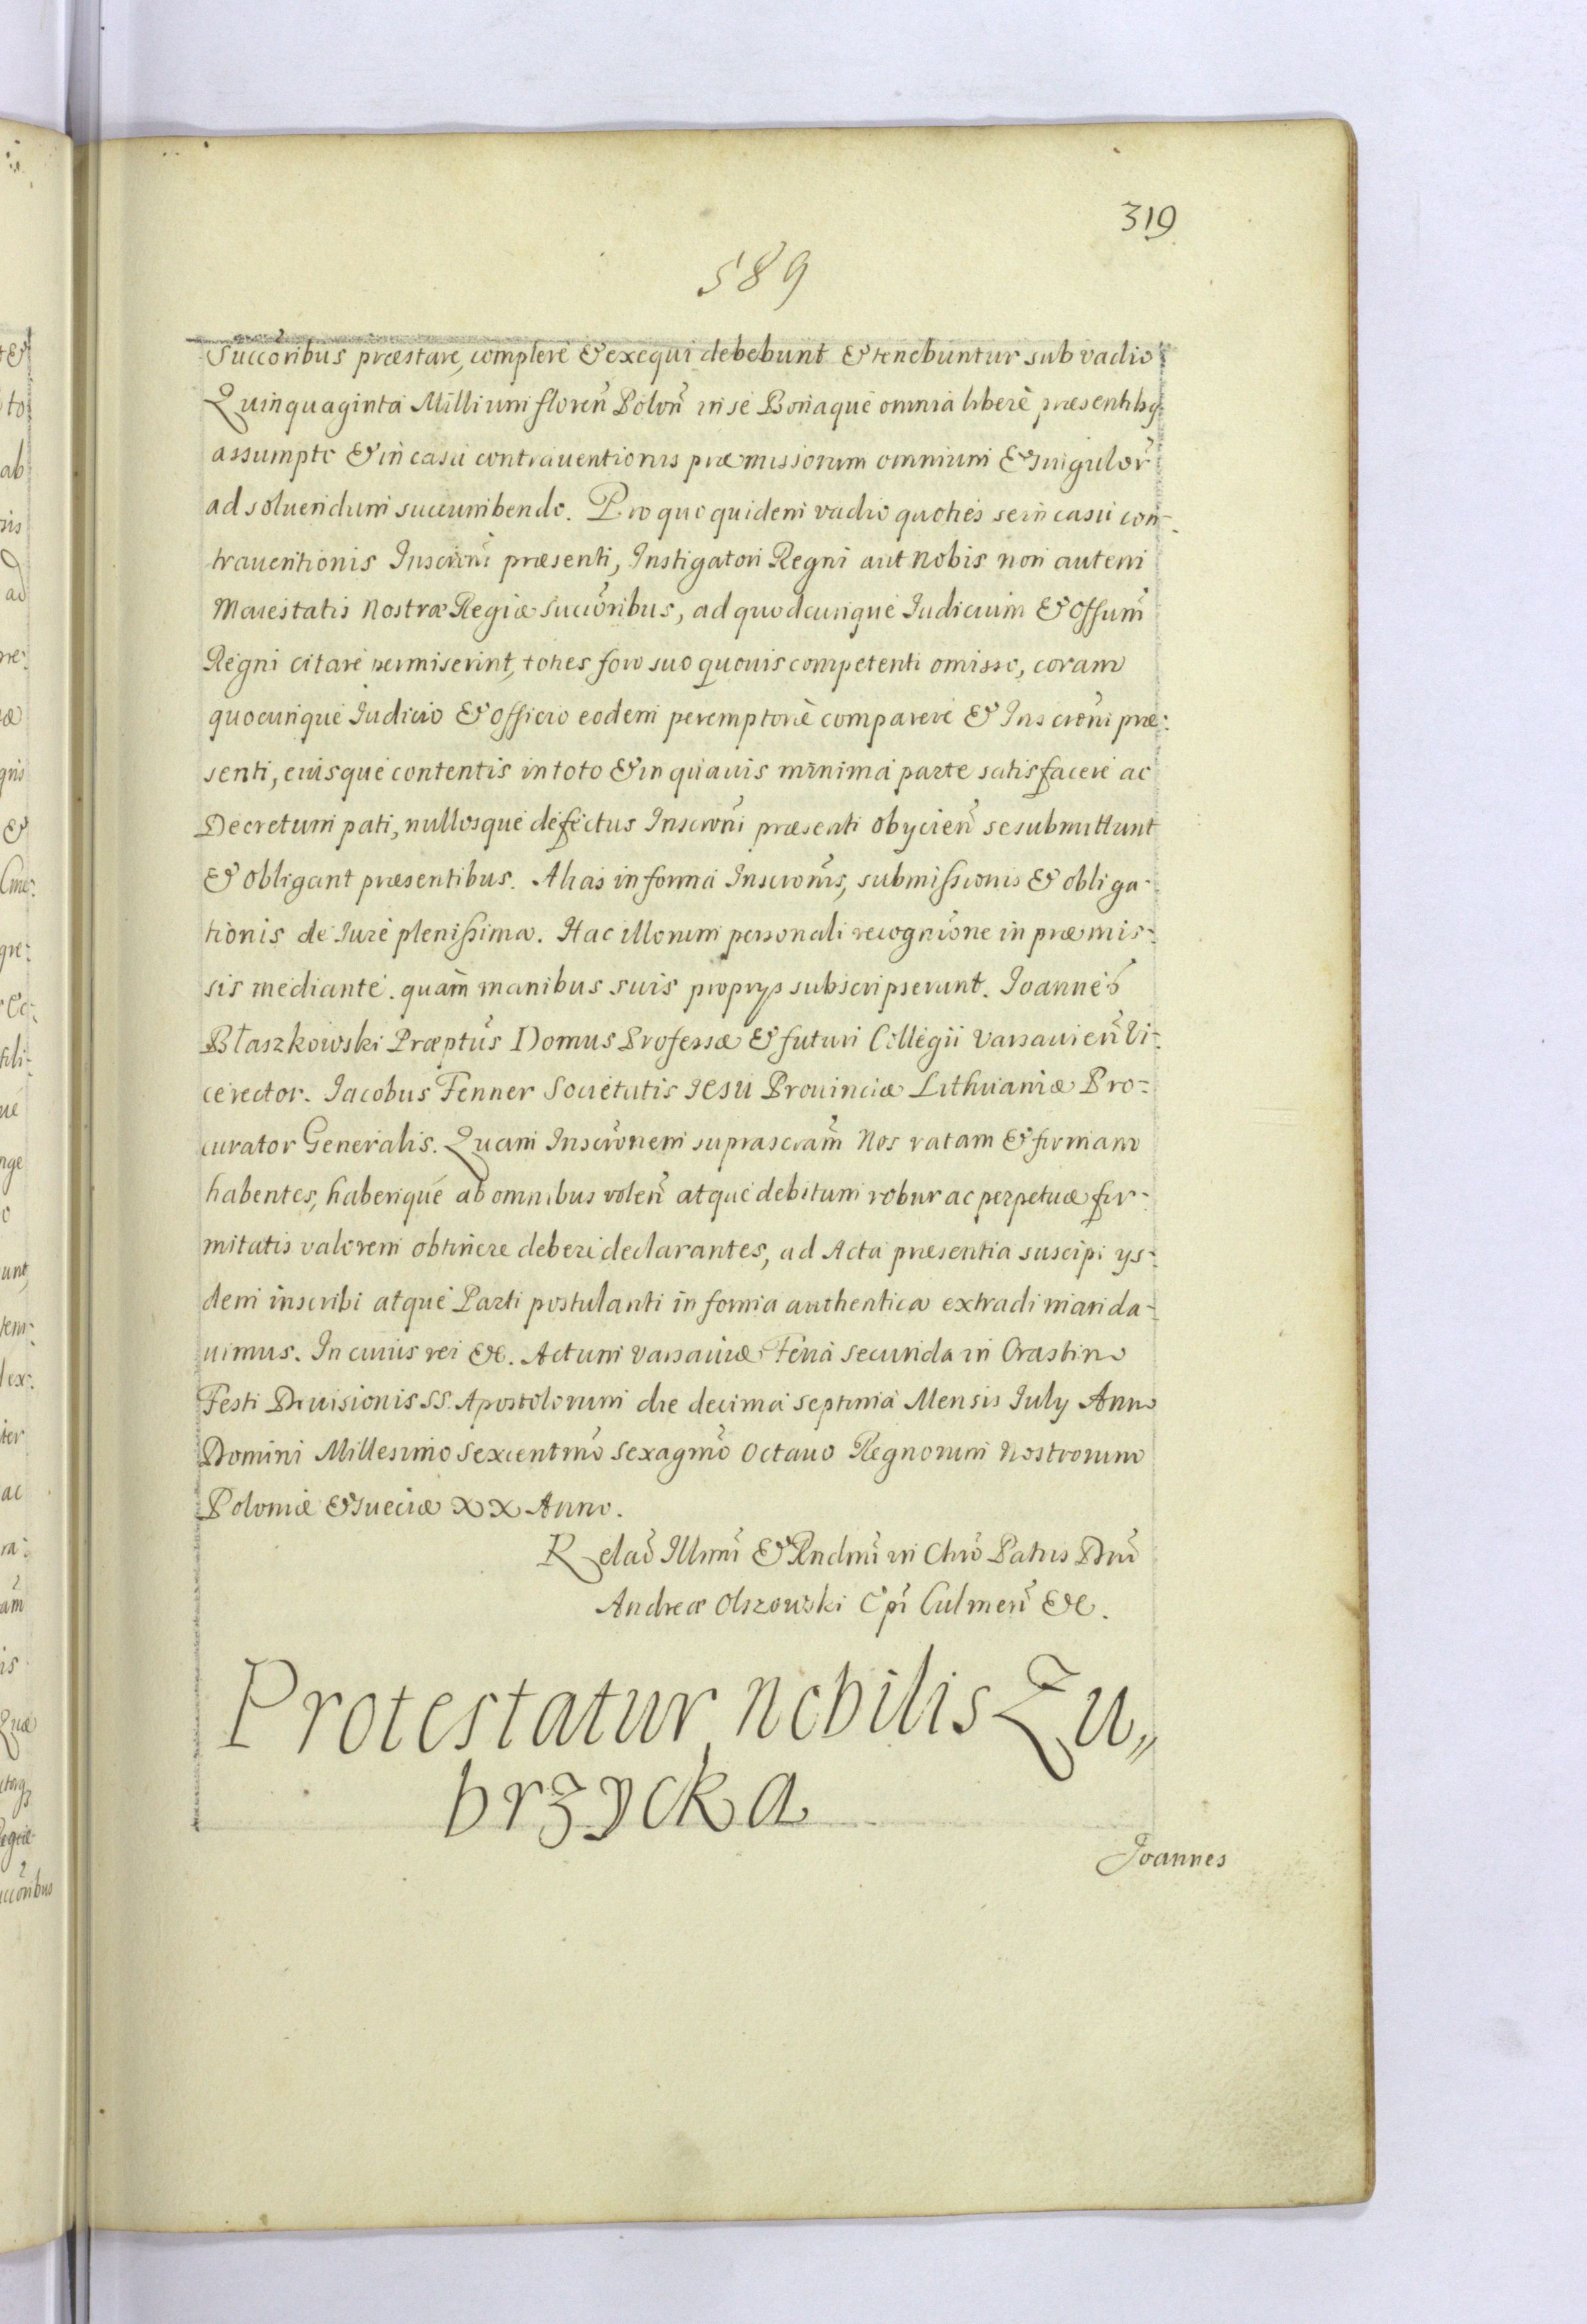 319
589
Succõribus præstare, complere & exequi debebunt & tenebuntur sub vadio
Quinquaginta Millium floreñ Poloñ in se Bonaque omnia liberè præsentibq
assumpto & in casu contrauentionis præmissorum omnium & singulor̃
ad soluendum succumbendo. Pro quo quidem vadio quoties se in casu con-
trauentionis Inscrõni præsenti, Instigatori Regni aut Nobis non autem
Maiestatis Nostræ Regiæ succõribus, ad quodcunque Iudicium & Offum̃
Regni citare permiserint, toties foro suo quouis competenti omisso, coram
quocunque Iudicio & officio eodem peremptoriè comparere & Inscrõni præ-
senti, eiusque contentis in toto & in quauis minima parte satisfacere ac
Decretum pati, nullosque defectus Inscrõni præsenti obycieñ se submittunt
& obligant præsentibus. Alias in forma Inscrõnis, submissionis & obliga-
tionis de Iure plenissima. Hac illorum personali recognĩone in præmis-
sis mediante. quam manibus suis proprys subscripserunt. Joannes
Błaszkowski Præptũs Domus Professæ & futuri Collegii Varsauieñ Vi-
cerector. Iacobus Fenner Societatis IESU Prouinciæ Lithuaniæ Pro-
curator Generalis. Quam Inscrõnem suprascram̃ Nos ratam & firmam
habentes, haberique ab omnibus voleñ atque debitum robur ac perpetuæ fir-
mitatis valorem obtinere deberi declarantes, ad Acta præsentia suscipi ys-
dem inscribi atque Parti postulanti in forma authentica extradi manda-
uimus. In cuius rei &c. Actum Varsauiæ Feria secunda in Crastino
Festi Diuisionis SS. Apostolorum die decima septima Mensis July Anno
Domini Millesimo Sexcentmõ Sexagmõ Octauo Regnorum Nostrorum
Poloniæ & Sueciæ XX Anno.
Relaõ Illmi & Rndmi in Chrõ Patris Dni
Andreæ Olszowski Epĩ Culmeñ &c.
Protestatur nobilis Zu„
brzycka
Joannes